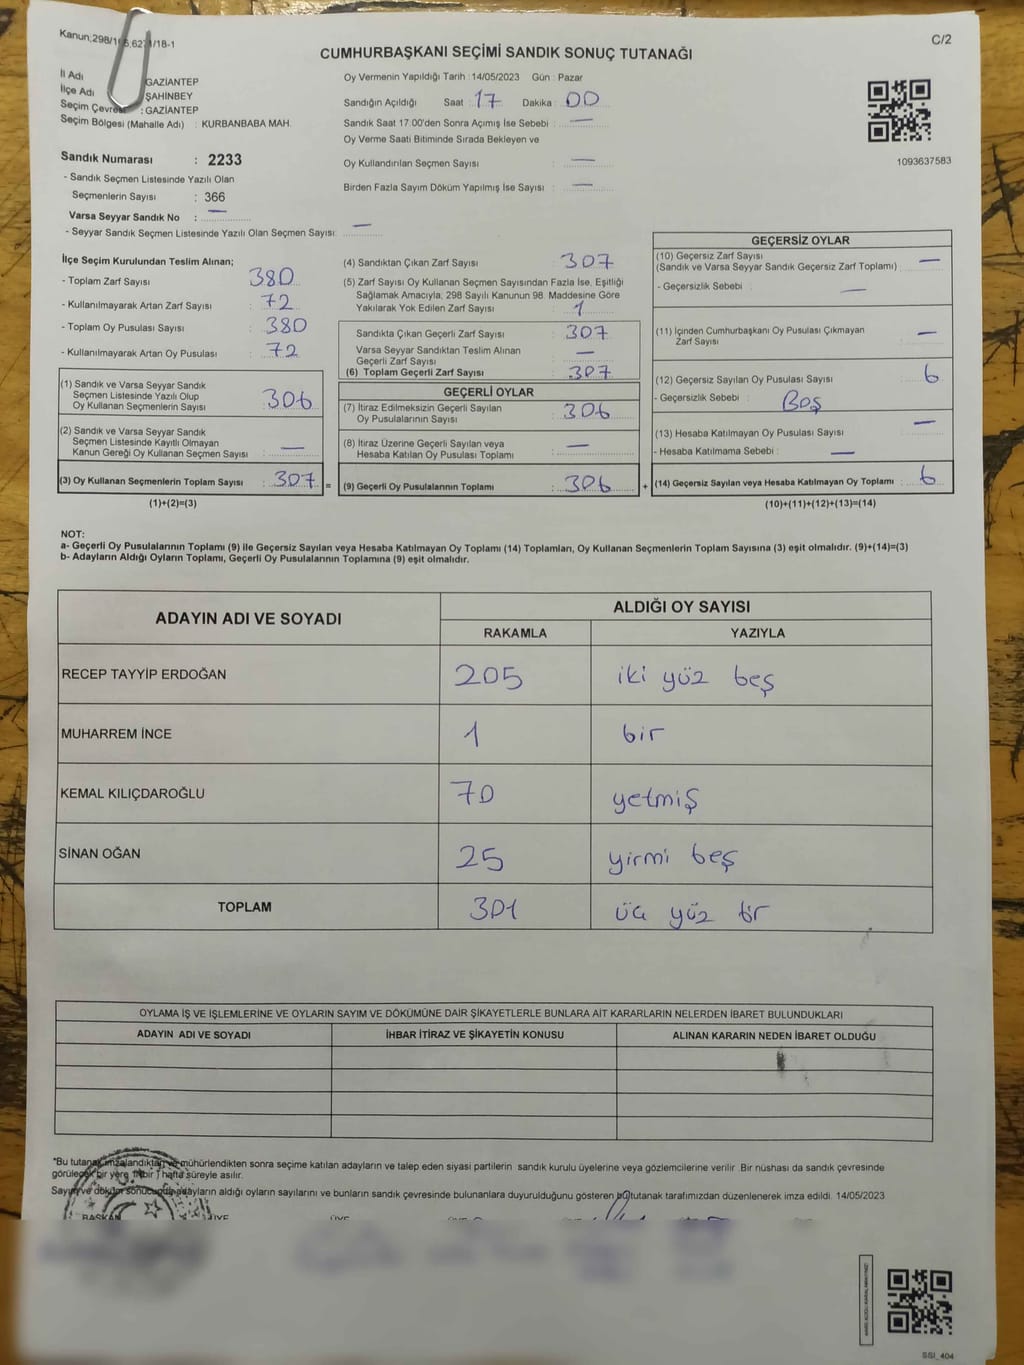 Kanun;298/
/18-1
C/2
CUMHURBAŞKANI SEÇİMİ SANDIK SONUÇ TUTANAĞI
İl Adı GAZİANTEP
İlçe Adı ŞAHİNBEY
Seçim Çevresi : GAZİANTEP
Seçim Bölgesi (Mahalle Adı) : KURBANBABA MAH.
Sandık Numarası : 2233
- Sandık Seçmen Listesinde Yazılı Olan
Seçmenlerin Sayısı : 366
Varsa Seyyar Sandık No : —
- Seyyar Sandık Seçmen Listesinde Yazılı Olan Seçmen Sayısı: —
Oy Vermenin Yapıldığı Tarih : 14/05/2023 Gün : Pazar
Sandığın Açıldığı Saat : 17 Dakika : 00
Sandık Saat 17.00'den Sonra Açımış İse Sebebi : —
Oy Verme Saati Bitiminde Sırada Bekleyen ve
Oy Kullandırılan Seçmen Sayısı : —
Birden Fazla Sayım Döküm Yapılmış İse Sayısı : —
1093637583
İlçe Seçim Kurulundan Teslim Alınan;
- Toplam Zarf Sayısı : 380
- Kullanılmayarak Artan Zarf Sayısı : 72
- Toplam Oy Pusulası Sayısı : 380
- Kullanılmayarak Artan Oy Pusulası : 72
(1) Sandık ve Varsa Seyyar Sandık
Seçmen Listesinde Yazılı Olup
Oy Kullanan Seçmenlerin Sayısı : 306
(2) Sandık ve Varsa Seyyar Sandık
Seçmen Listesinde Kayıtlı Olmayan
Kanun Gereği Oy Kullanan Seçmen Sayısı : —
(3) Oy Kullanan Seçmenlerin Toplam Sayısı : 307 =
(1)+(2)=(3)
(4) Sandıktan Çıkan Zarf Sayısı : 307
(5) Zarf Sayısı Oy Kullanan Seçmen Sayısından Fazla İse, Eşitliği
Sağlamak Amacıyla; 298 Sayılı Kanunun 98. Maddesine Göre
Yakılarak Yok Edilen Zarf Sayısı : 1
Sandıkta Çıkan Geçerli Zarf Sayısı : 307
Varsa Seyyar Sandıktan Teslim Alınan
Geçerli Zarf Sayısı : —
(6) Toplam Geçerli Zarf Sayısı : 307
GEÇERLİ OYLAR
(7) İtiraz Edilmeksizin Geçerli Sayılan
Oy Pusulalarının Sayısı : 306
(8) İtiraz Üzerine Geçerli Sayılan veya
Hesaba Katılan Oy Pusulası Toplamı : —
(9) Geçerli Oy Pusulalarının Toplamı : 306 +
GEÇERSİZ OYLAR
(10) Geçersiz Zarf Sayısı
(Sandık ve Varsa Seyyar Sandık Geçersiz Zarf Toplamı) : —
- Geçersizlik Sebebi : —
(11) İçinden Cumhurbaşkanı Oy Pusulası Çıkmayan
Zarf Sayısı : —
(12) Geçersiz Sayılan Oy Pusulası Sayısı : 6
- Geçersizlik Sebebi : Boş
(13) Hesaba Katılmayan Oy Pusulası Sayısı : —
- Hesaba Katılmama Sebebi : —
(14) Geçersiz Sayılan veya Hesaba Katılmayan Oy Toplamı : 6
(10)+(11)+(12)+(13)=(14)
NOT:
a- Geçerli Oy Pusulalarının Toplamı (9) ile Geçersiz Sayılan veya Hesaba Katılmayan Oy Toplamı (14) Toplamları, Oy Kullanan Seçmenlerin Toplam Sayısına (3) eşit olmalıdır. (9)+(14)=(3)
b- Adayların Aldığı Oyların Toplamı, Geçerli Oy Pusulalarının Toplamına (9) eşit olmalıdır.
ADAYIN ADI VE SOYADI
ALDIĞI OY SAYISI
RAKAMLA YAZIYLA
RECEP TAYYİP ERDOĞAN 205 iki yüz beş
MUHARREM İNCE 1 bir
KEMAL KILIÇDAROĞLU 70 yetmiş
SİNAN OĞAN 25 yirmi beş
TOPLAM 301 üç yüz bir
OYLAMA İŞ VE İŞLEMLERİNE VE OYLARIN SAYIM VE DÖKÜMÜNE DAİR ŞİKAYETLERLE BUNLARA AİT KARARLARIN NELERDEN İBARET BULUNDUKLARI
ADAYIN ADI VE SOYADI İHBAR İTİRAZ VE ŞİKAYETİN KONUSU ALINAN KARARIN NEDEN İBARET OLDUĞU
*Bu tutanak imzalandıktan ve mühürlendikten sonra seçime katılan adayların ve talep eden siyasi partilerin sandık kurulu üyelerine veya gözlemcilerine verilir. Bir nüshası da sandık çevresinde
görülecek bir yere 1 (bir) hafta süreyle asılır.
Sayım ve döküm sonucunda adayların aldığı oyların sayılarını ve bunların sandık çevresinde bulunanlara duyurulduğunu gösteren bu tutanak tarafımızdan düzenlenerek imza edildi. 14/05/2023
BAŞKAN ÜYE ÜYE ÜYE
SSI_404